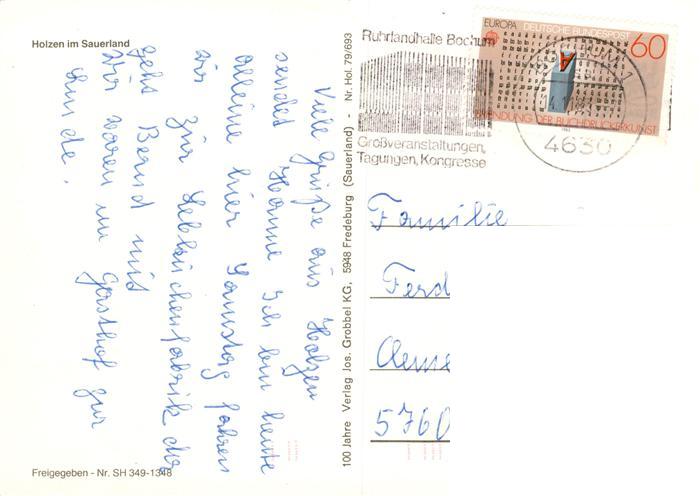 Holzen im Sauerland
Viele Grüße aus Holzen
sendet Hanne Ich bin heute
alleine hier Samstag fahren
wir zur Lebkuchenfabrik da
gehts Bernd mit
Wir waren im Gasthof zur
Linde.
Freigegeben - Nr. SH 349-1348
100 Jahre Verlag Jos. Grobbel KG, 5948 Fredeburg (Sauerland) - Nr. Hol. 79/693
Ruhrlandhalle Bochum
Großveranstaltungen,
Tagungen, Kongresse
EUROPA DEUTSCHE BUNDESPOST
60
ERFINDUNG DER BUCHDRUCKERKUNST
4630
Familie
Ferd
5760